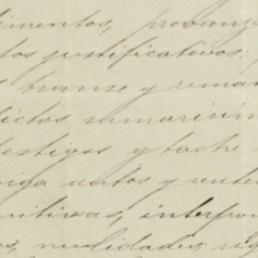 imentos, provanz
tos justificativos:
s trance y reman
lictos sumarisim
testigos y tache
oiga autos y senten
initivas, interpon
os, nulidades, re